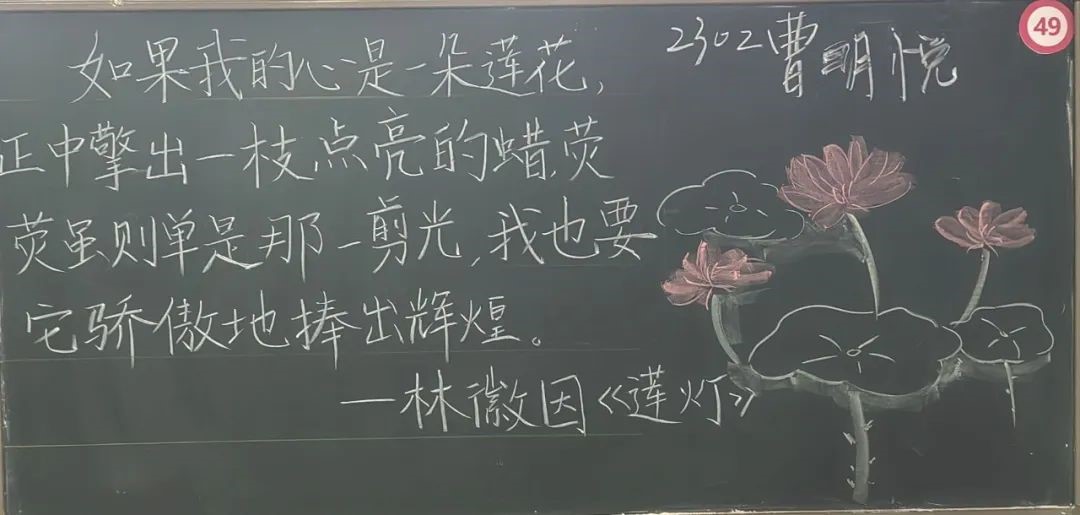 如果我的心是一朵莲花，
正中擎出一枝点亮的蜡，荧
荧虽则单是那一剪光，我也要
它骄傲地捧出辉煌。
—林徽因《莲灯》
2302曹明悦
49